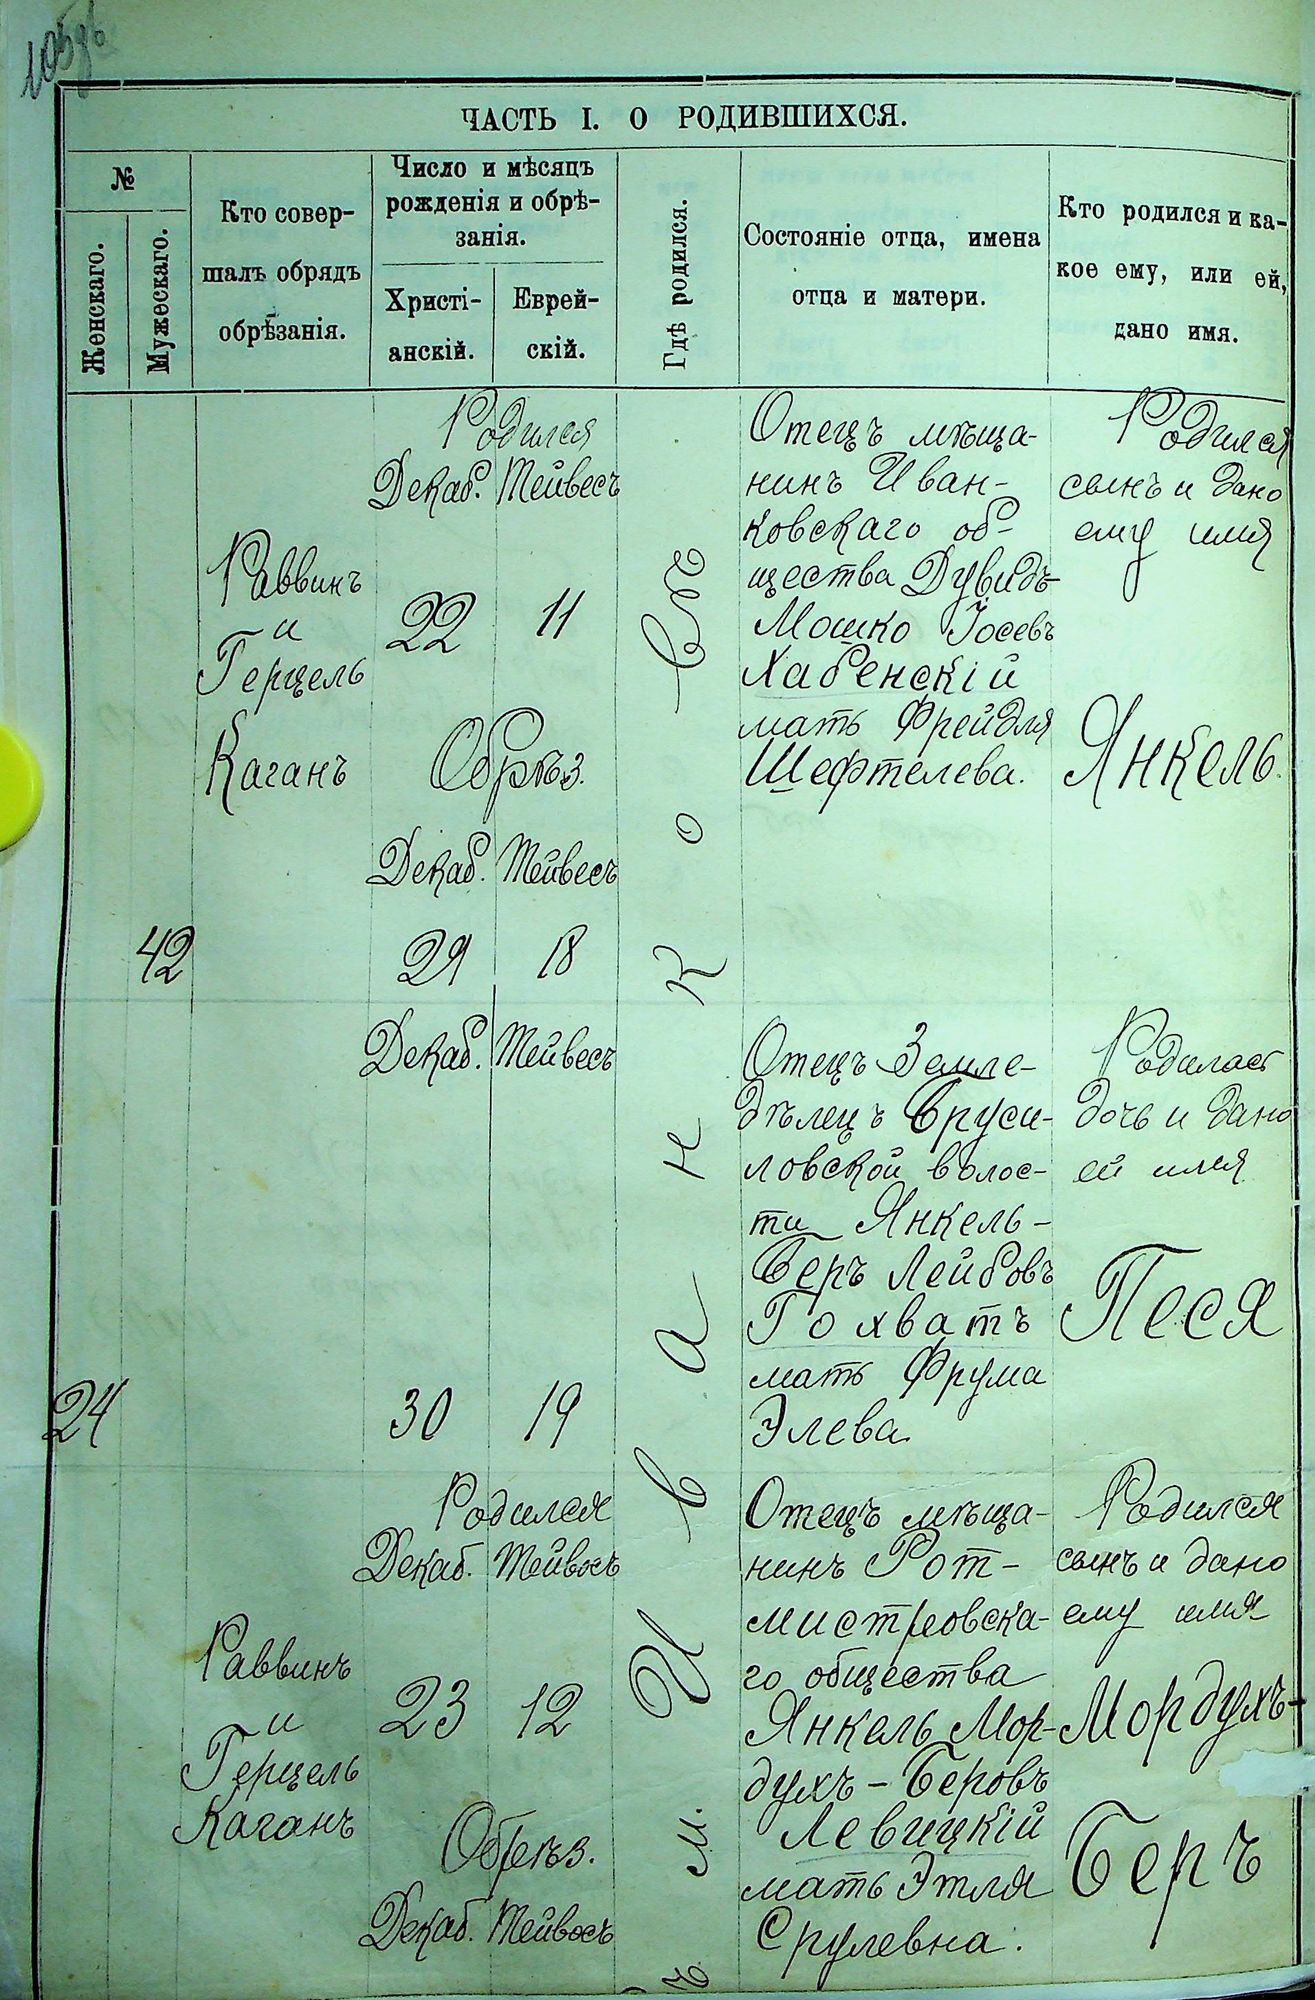 105об
ЧАСТЬ I. О РОДИВШИХСЯ.
№
Женскаго.
Мужескаго.
Кто совер-
шалъ обрядъ
обрѣзанія.
Число и мѣсяцъ
рожденія и обрѣ-
занія.
Христі-
анскій.
Еврей-
скій.
Гдѣ родился.
Состояніе отца, имена
отца и матери.
Кто родился и ка-
кое ему, или ей,
дано имя.
42
Раввинъ
и
Герцель
Каганъ
Родился
Декаб. Тейвесъ
22 11
Обрѣз.
Декаб. Тейвесъ
29 18
Отецъ мѣща-
нинъ Иван-
ковскаго об-
щества Дувидъ-
Мошко Іосевъ
Хабенскій
мать Фрейдля
Шефтелева.
Родился
сынъ и дано
ему имя
Янкель.
24
Декаб. Тейвесъ
30 19
Отецъ Земле-
дѣлецъ Бруси-
ловской волос-
ти Янкель-
Беръ Лейбовъ
Гохватъ
мать Фрума
Элева
Родилась
дочь и дано
ей имя
Песя
Раввинъ
и
Герцель
Каганъ
Родился
Декаб. Тейвосъ
23 12
Обрѣз.
Декаб. Тейвосъ
Отецъ мѣща-
нинъ Рот-
мистровска-
го общества
Янкель Мор-
духъ-Беровъ
Левицкій
мать Этля
Срулевна.
Родился
сынъ и дано
ему имя
Мордухъ-
Беръ
м. Иванковѣ